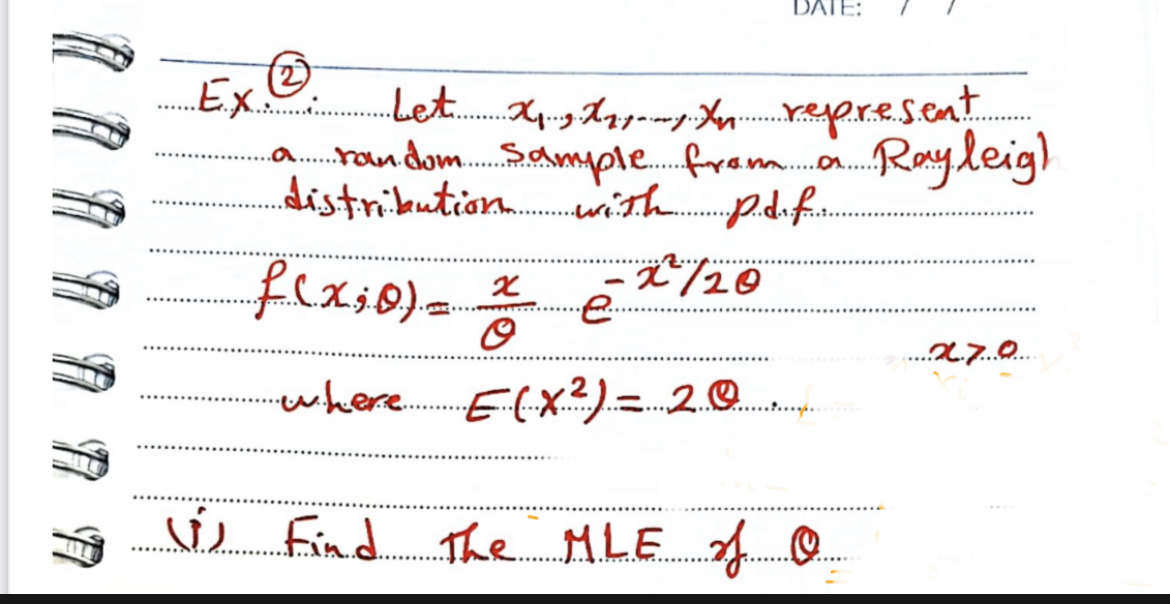 DATE: / /
Ex.②: Let x₁, x₂, --, Xn represent
a random sample from a Rayleigh
distribution with p.d.f.
f(x;θ) = x/θ e^(-x²/2θ)
x>0
where E(X²) = 2θ .
(i) Find The MLE of θ